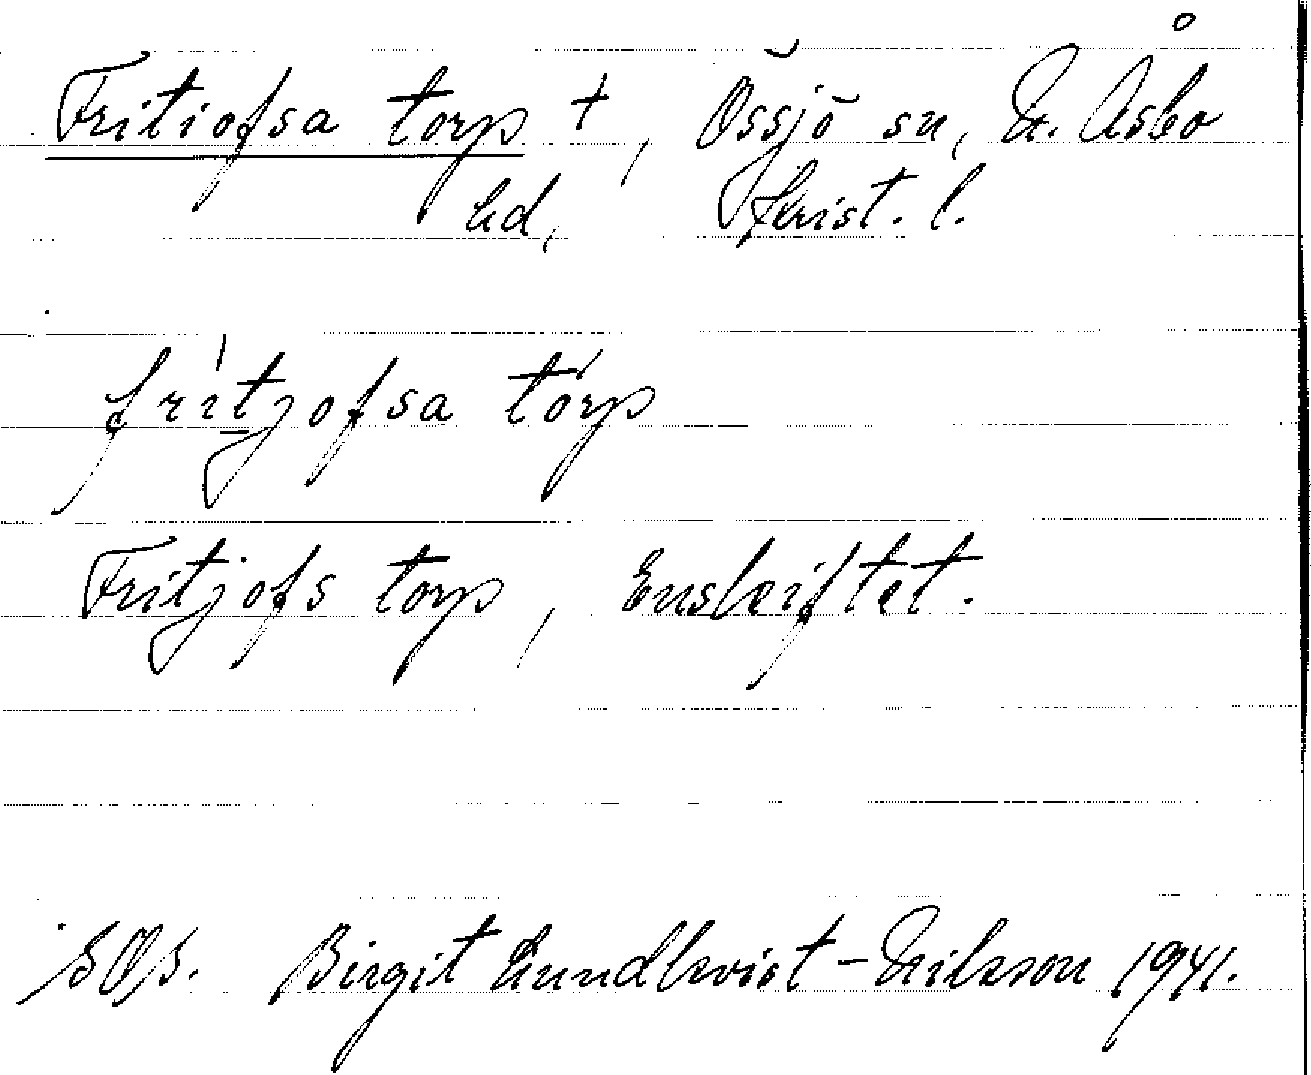 Fritiofsa torp †, Össjö sn, N. Åsbo
hd, Krist. l.
fritjofsa torp
Fritjofs torp, Enskiftet.
Birgit Lundkvist-Nilsson 1941.